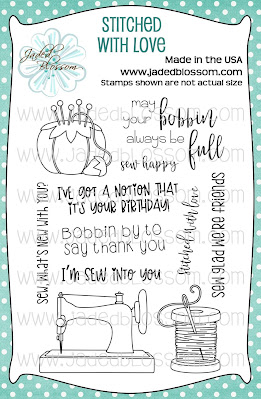 STITCHED
WITH LOVE
Jaded
Blossom
Made in the USA
www.jadedblossom.com
Stamps shown are not actual size
may
your bobbin
always be
full
sew happy
I'VE GOT A NOTION THAT
IT'S YOUR BIRTHDAY!
Bobbin by to
say thank you
I'M SEW INTO YOU
SEW, WHAT'S NEW WITH YOU?
stitched with love
SEWCIAL FABRIC ADDICT
www.jadedblossom.com
www.jadedblossom.com
www.jadedblossom.com
www.jadedblossom.com